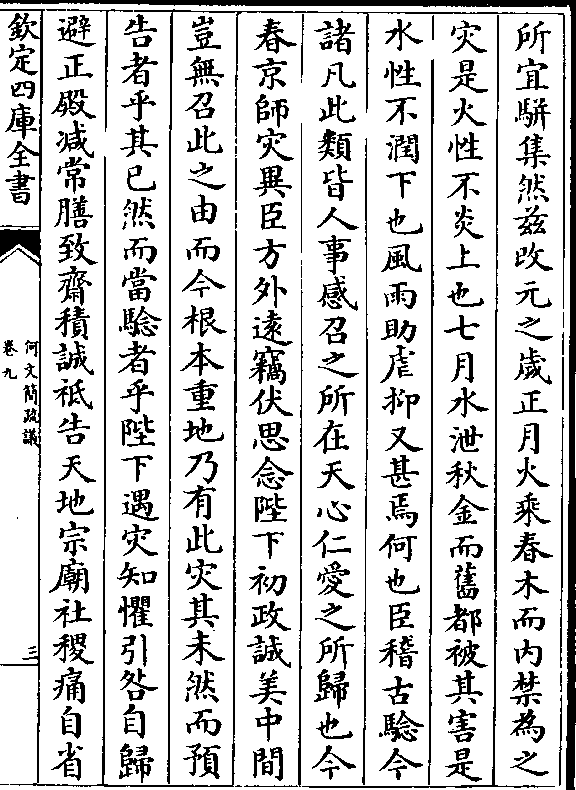 所宜駢集然茲改元之歲正月火乘春木而内禁為之
灾是火性不炎上也七月水泄秋金而舊都被其害是
水性不潤下也風雨助虐抑又甚焉何也臣稽古驗今
諸凡此類皆人事感召之所在天心仁愛之所歸也今
春京師灾異臣方外逺竊伏思念陛下初政誠美中間
豈無召此之由而今根本重地乃有此灾其未然而預
告者乎其已然而當驗者乎陛下遇灾知懼引咎自歸
避正殿减常膳致齋積誠祇告天地宗廟社稷痛自省
欽定四庫全書
何文簡疏議
卷九
三